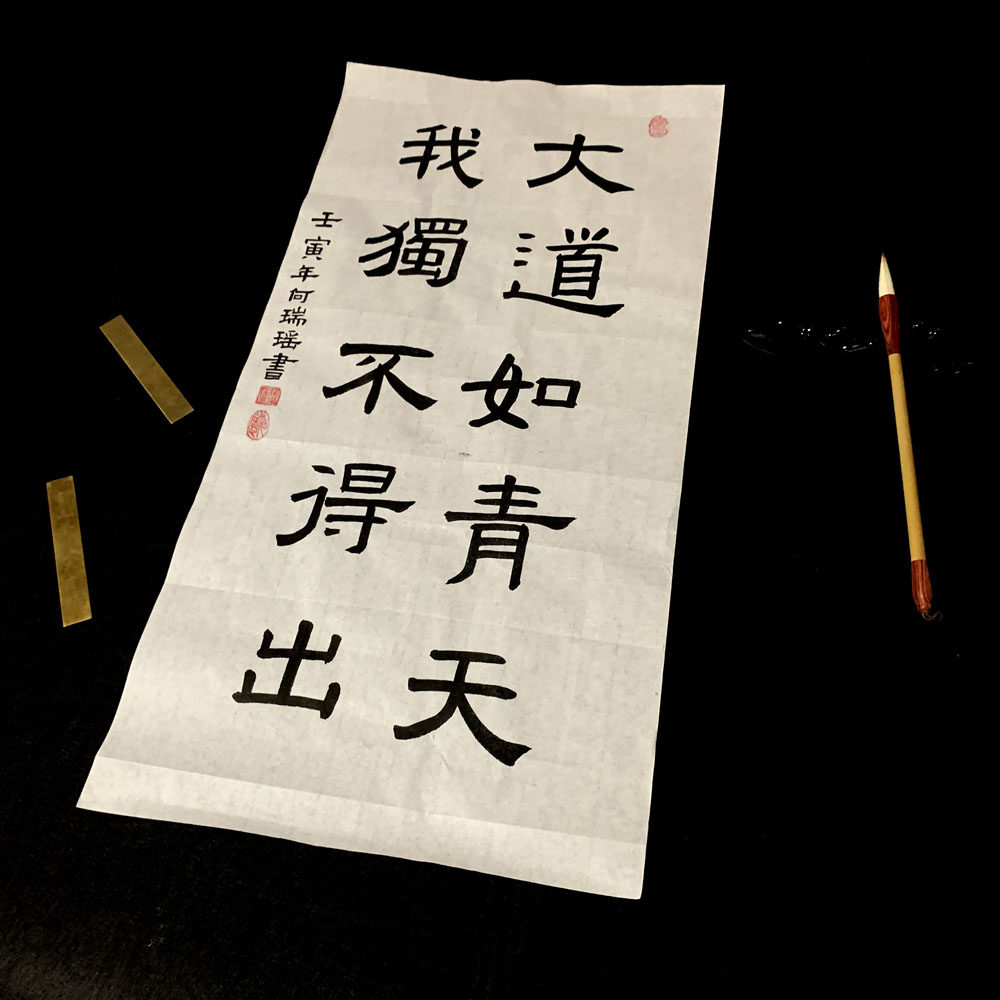 大道如青天
我獨不得出
壬寅年何瑞瑶書